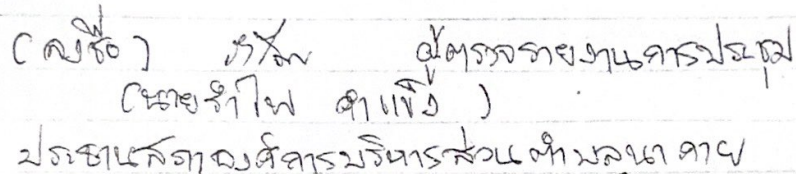 (ลงชื่อ) รำไพ ผู้ตรวจรายงานการประชุม
(นายรำไพ คำแข็ง)
ประธานสภาองค์การบริหารส่วนตำบลนาคาย